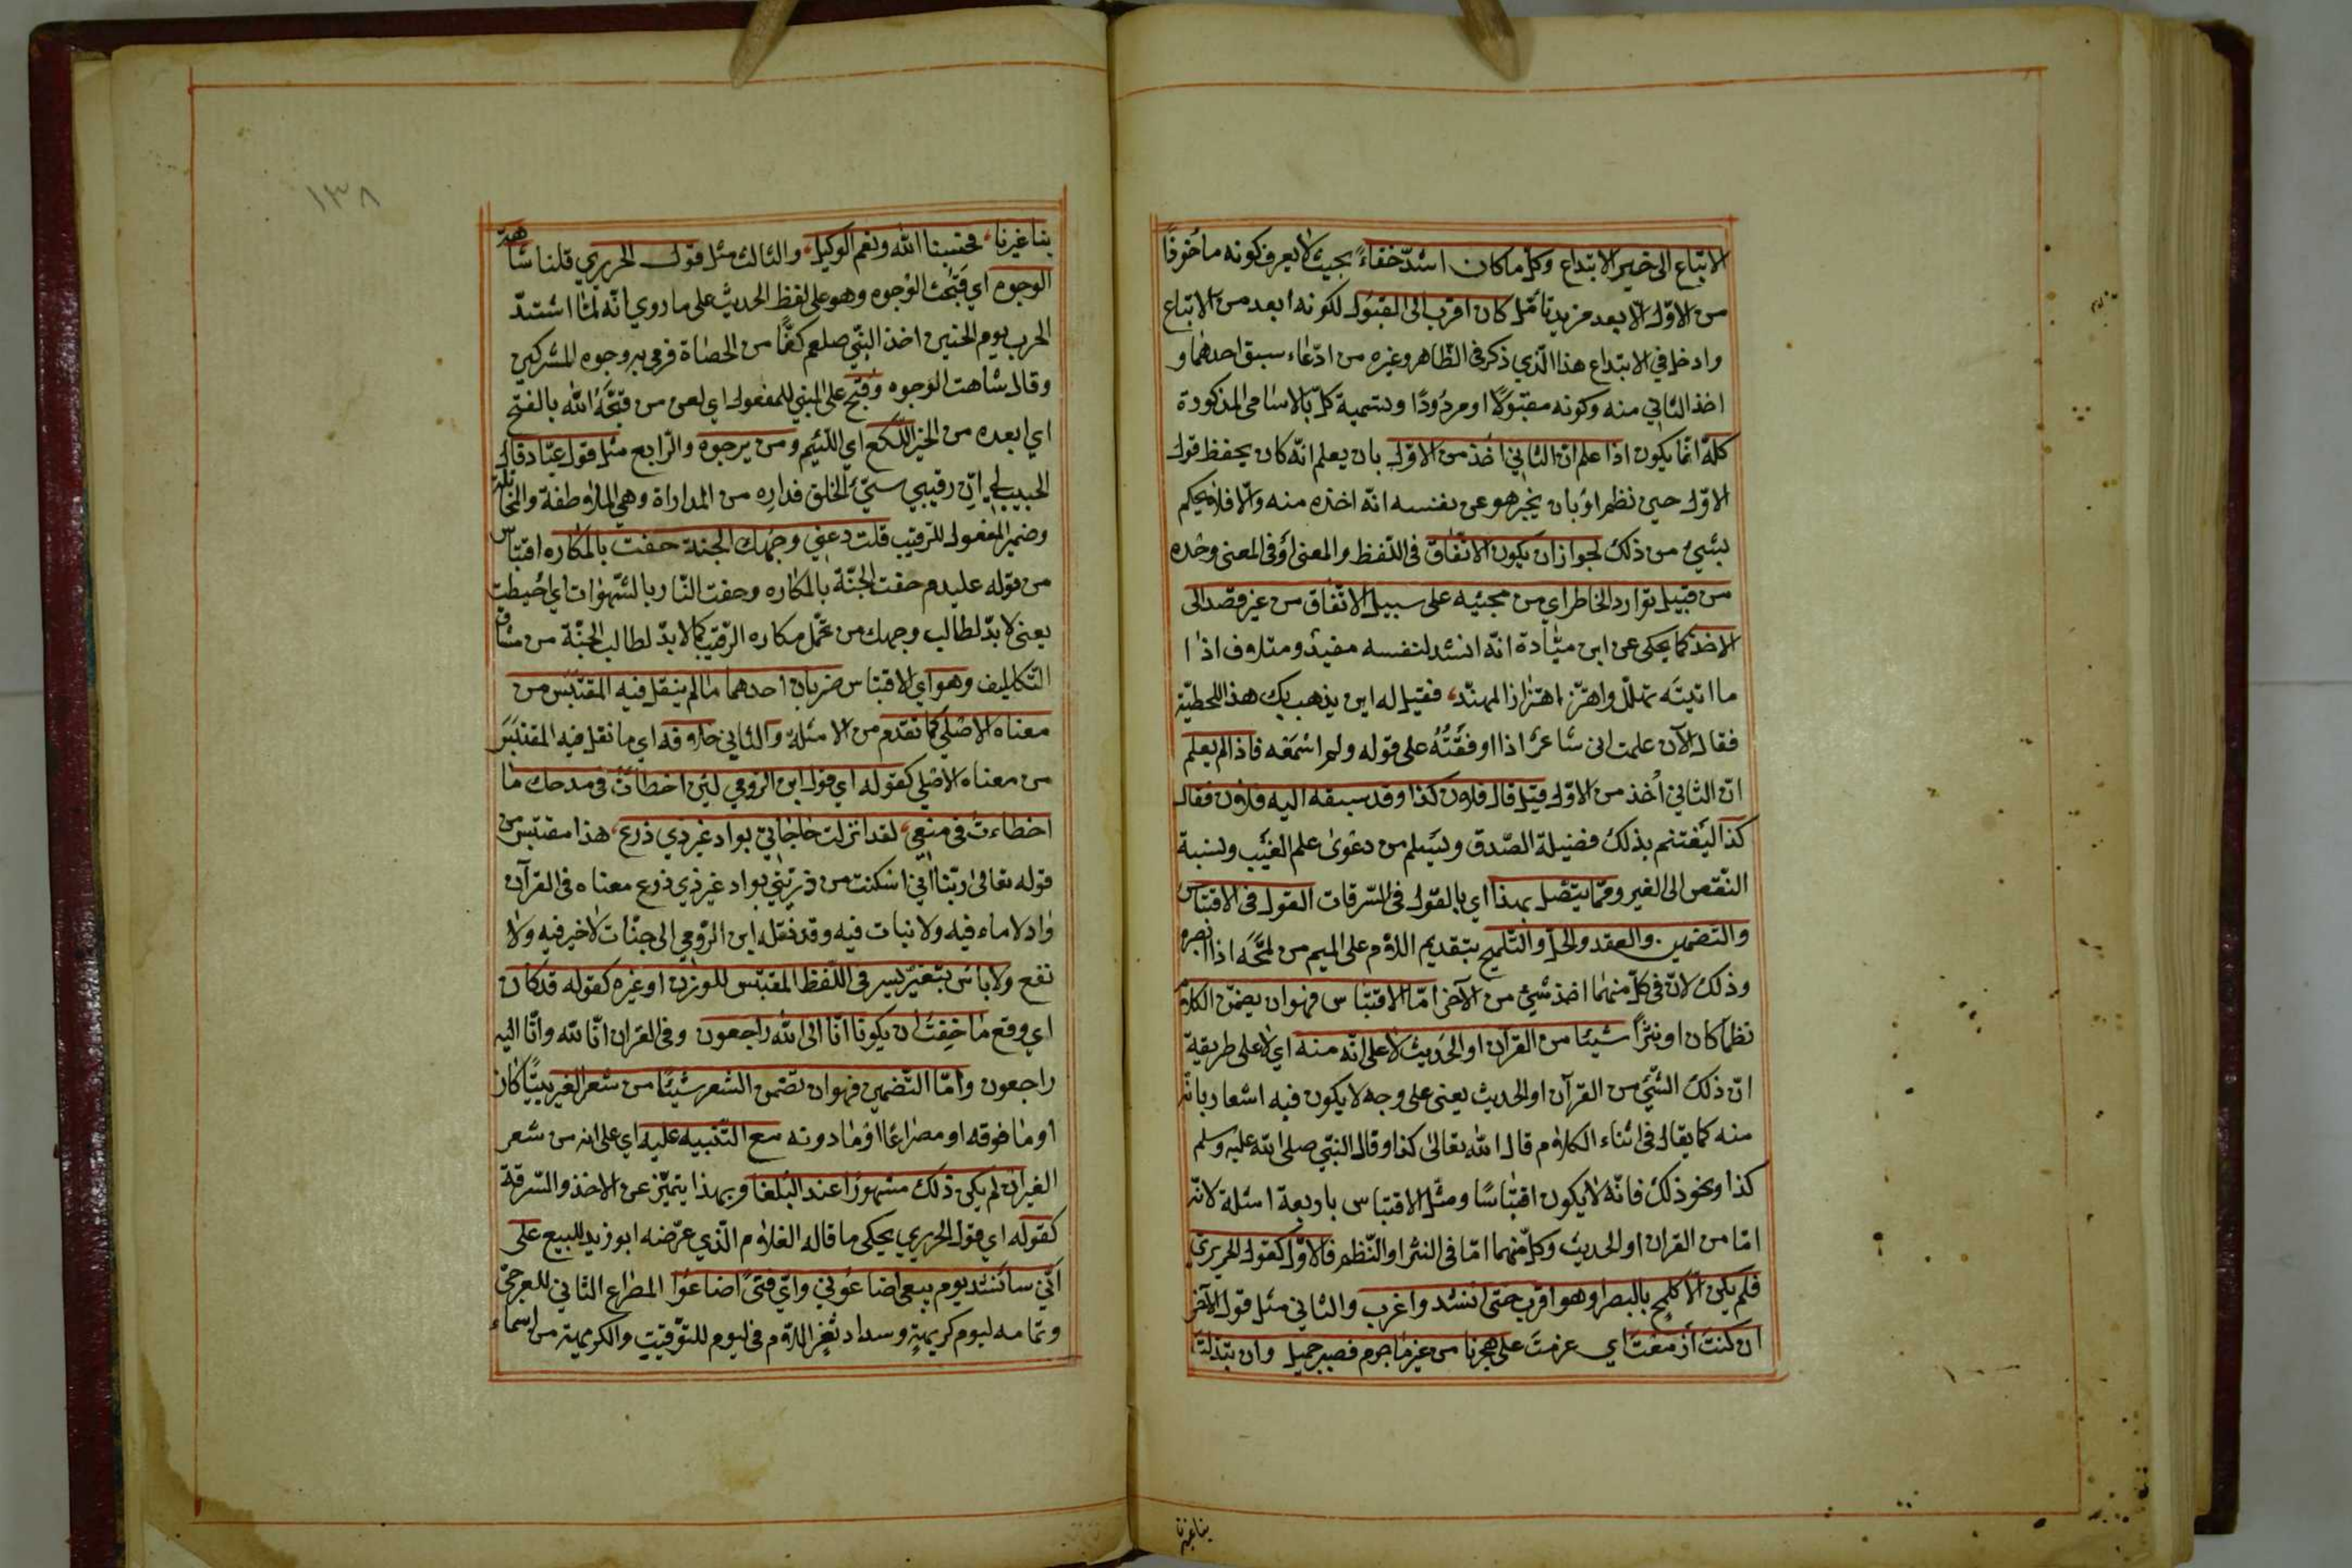 الاتباع الى خير الابتداع وكل ما كان اشدّ خفاءً بحيث لا يعرف كونه مأخوذًا
من الاوّل الّا بعد مزيد تأمّل كان اقرب الى القبول لكونه ابعد من الاتباع
وادخل في الابتداع هذا الّذي ذكر في الظّاهر وغيره من ادّعاء سبق احدهما و
اخذ الثاني منه وكونه مقبولًا او مردودًا وتسمية كلّ بالاسامي المذكورة
كلّه انّما يكون اذا علم انّ الثاني اخذ من الاوّل بان يعلم انّه كان يحفظ قول
الاوّل حين نظم او بان يخبر هو عن نفسه انّه اخذه منه والّا فلا يحكم
بشيئ من ذلك لجواز ان يكون الاتّفاق في اللّفظ والمعنى او في المعنى وحده
من قبيل توارد الخاطر اي من مجيئه على سبيل الاتّفاق من غير قصد الى
الاخذ كما يحكى عن ابن ميّادة انّه انشد لنفسه مفيد ومتلاف اذا
ما اتيته تهلّل واهتزّ اهتزاز المهنّد، فقيل له اين يذهب بك هذا للحطيّة
فقال الآن علمت انى شاعر اذا اوفقته على قوله ولم اسمعه فاذا لم يعلم
انّ الثاني اُخذ من الاوّل قيل قال فلان كذا وقد سبقه اليه فلان فقال
كذا ليغتنم بذلك فضيلة الصّدق ويسلم من دعوى علم الغيب ونسبة
النّقص الى الغير وممّا يتّصل بهذا اي بالقول في السّرقات القول في الاقتباس
والتضمين والعقد والحلّ والتّلميح بتقديم اللّام على الميم من لمحه اذا ابصره
وذلك لانّ في كلّ منهما اخذ شيئ من الآخر امّا الاقتباس فهو ان يضمّن الكلام
نظمًا كان او نثرًا شيئا من القرآن او الحديث لا على انّه منه اي لا على طريقة
انّ ذلك الشّيئ من القرآن او الحديث يعني على وجه لا يكون فيه اشعار بانّه
منه كما يقال في اثناء الكلام قال الله تعالى كذا وقال النّبيّ صلى الله عليه وسلم
كذا ونحو ذلك فانّه لا يكون اقتباسًا ومثّل الاقتباس باربعة امثلة لانّه
امّا من القران او الحديث وكلّ منهما امّا في النثر او النّظم فالاوّل كقول الحريري
فلم يكن الّا كلمح بالبصر او هو اقرب حتى انشد واغرب والثاني مثل قول الآخر
ان كنت ازمعت اي عزمت على هجرنا من غير ما جرم فصبر جميل وان تبدّلت
بنا غيرنا
١٣٨
بنا غيرنا، فحسبنا الله ونعم الوكيل، والثالث مثل قول الحريري قلنا شاهت
الوجوه اي قبحت الوجوه وهو على لفظ الحديث على ما روي انّه لمّا اشتدّ
الحرب يوم الحنين اخذ النبّي صلعم كفًّا من الحصاة فرمى به وجوه المشركين
وقال شاهت الوجوه وقبح على المبني للمفعول اي لعن من قبّحه الله بالفتح
اي ابعده من الخير اللّكع اي اللّئيم ومن يرجوه والرّابع مثل قول عبّاد قال
الحبيب لي انّ رقيبي سيّئ الخلق فداره من المداراة وهي الملاطفة والمخاتلة
وضمير المفعول للرّقيب قلت دعني وجهك الجنة حفت بالمكاره اقتباس
من قوله عليه م حفت الجنّة بالمكاره وحفت النّار بالشّهوات اي احيطت
يعني لا بدّ لطالب وجهك من تحمّل مكاره الرّقيب كما لا بدّ لطالب الجنّة من مشاق
التّكاليف وهو اي الاقتباس ضربان احدهما ما لم ينقل فيه المقتبس من
معناه الاصلي كما تقدم من الامثلة والثاني خلافه اي ما نقل فيه المقتبس
من معناه الاصلي كقوله اي قول ابن الرّومي لئن اخطأت في مدحك ما
اخطاءت في منعي، لقد انزلت حاجاتي بواد غير ذي ذرع، هذا مقتبس من
قوله تعالى ربّنا انّي اسكنت من ذريّتي بواد غير ذي ذرع معناه في القرآن
واد لا ماء فيه ولا نبات فيه وقد نقله ابن الرّومي الى جناب لا خير فيه ولا
نفع ولا باس بتغيير يسير في اللّفظ المقتبس للوزن او غيره كقوله قد كان
اي وقع ما خفت ان يكونا انّا الى الله راجعون وفي القران انّا لله وانّا اليه
راجعون وامّا التّضمين فهو ان تضمن الشعر شيئًا من شعر الغير بيتًا كان
او ما فوقه او مصراعًا او ما دونه مع التّنبيه عليه اي على انه من شعر
الغير ان لم يكن ذلك مشهورًا عند البلغا وبهذا يتميّز عن الاخذ والسّرقة
كقوله اي قول الحريري يحكي ما قاله الغلام الّذي عرّضه ابو زيد للبيع على
انّي سأنشد يوم بيعي اضاعوني وايّ فتى اضاعوا المطراع الثاني للعرجيّ
وتمامه ليوم كريهة وسداد ثغر اللّام في ليوم للتوقيت والكريهة من اسماء